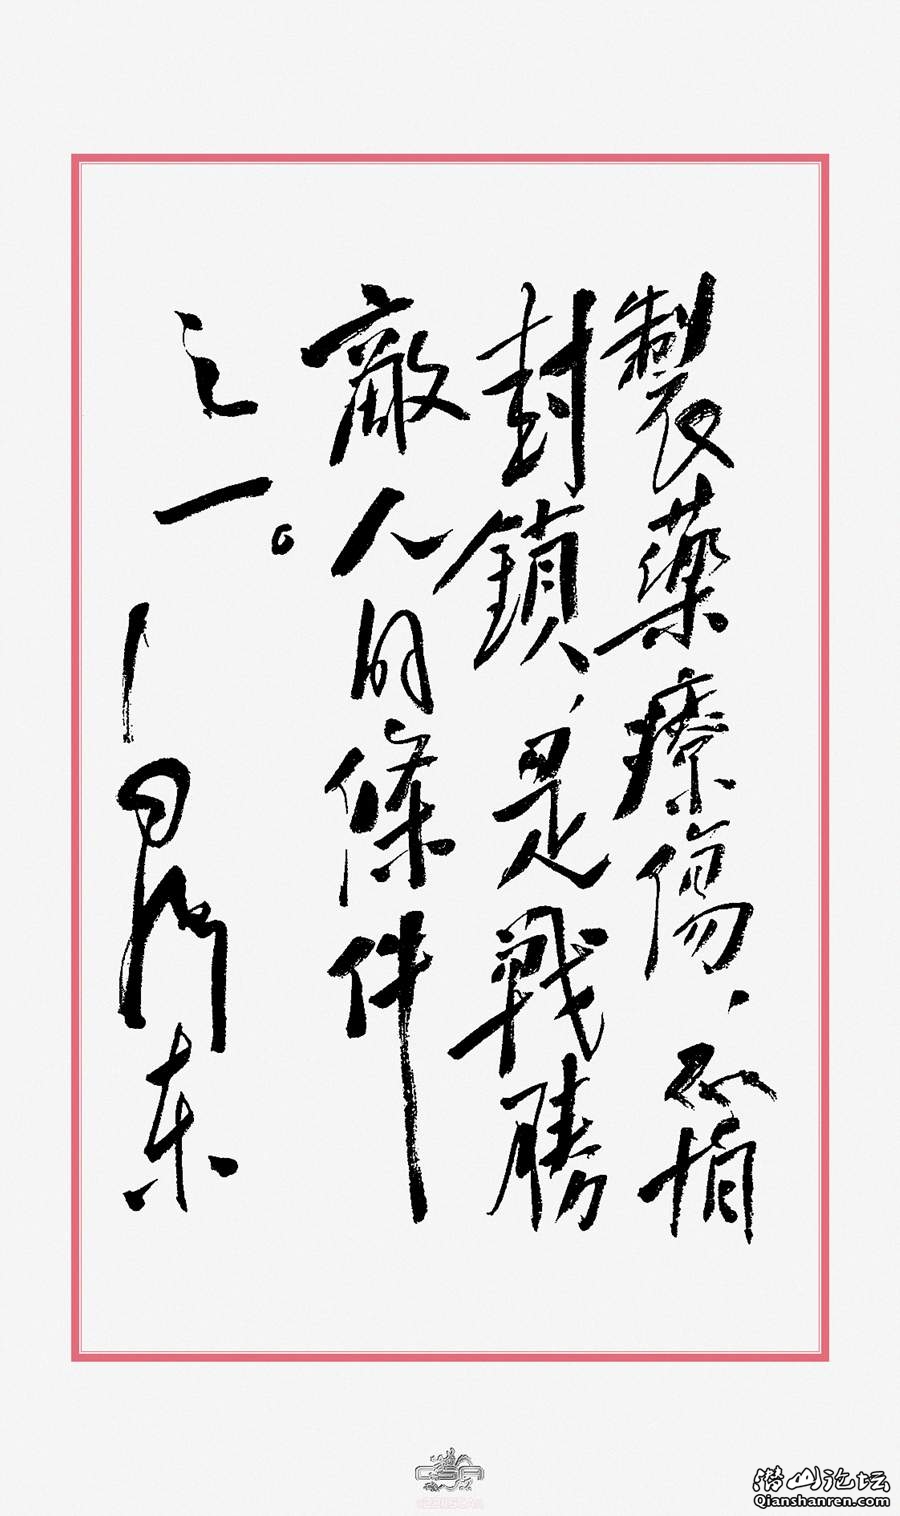 製藥療傷，不怕
封鎖，是戰勝
敵人的條件
之一。
｜毛澤东
潜山论坛
Qianshanren.com